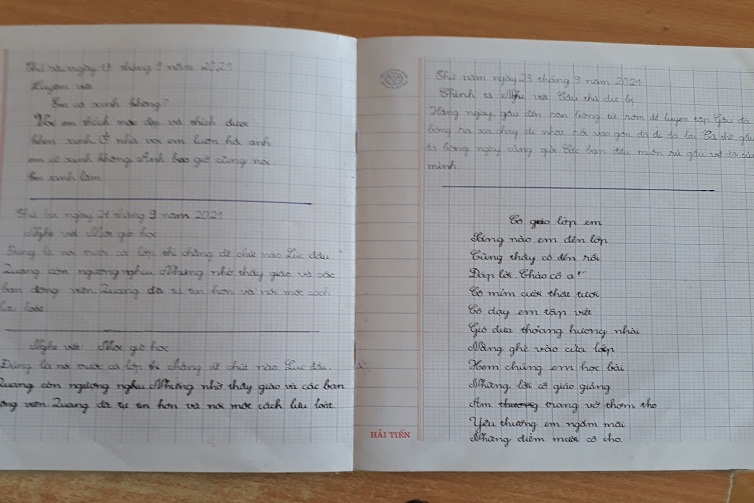 Thứ sáu ngày 17 tháng 9 năm 2021
Luyện viết
Em có xinh không?
Voi em thích mặc đẹp và thích được
khen xinh. Ở nhà voi em luôn hỏi anh
em có xinh không. Anh bao giờ cũng nói
Em xinh lắm
Thứ ba ngày 21 tháng 9 năm 2021
Nghe viết Một giờ học
Đúng là nói trước cả lớp thì chẳng dễ chút nào Lúc đầu
Quang còn ngượng nghịu. Nhưng nhờ thầy giáo và các
bạn động viên Quang đã tự tin hơn và nói một cách
lưu loát
Nghe viết Một giờ học
Đúng là nói trước cả lớp thì chẳng dễ chút nào Lúc đầu.
Quang còn ngượng nghịu. Nhưng nhờ thầy giáo và các bạn
động viên Quang đã tự tin hơn và nói một cách lưu loát.
Thứ năm ngày 23 tháng 9 năm 2021
Nghe viết Cầu thủ dự bị
Hằng ngày, gấu đến sân bóng từ sớm để luyện tập Gấu đá
bóng ra xa chạy đi nhặt rồi vào gôn đá đi đá lại Cứ thế, gấu
đá bóng ngày càng giỏi Các bạn đều muốn rủ gấu về đội của
mình
Cô giáo lớp em
Sáng nào em đến lớp
Cũng thấy cô đến rồi
Đáp lời Chào cô ạ!"
Cô mỉm cười thật tươi
Cô dạy em tập viết
Gió đưa thoảng hương nhài
Nắng ghé vào cửa lớp
Xem chúng em học bài
Những lời cô giáo giảng
Ấm trang vở thơm tho
Yêu thương em ngắm mãi
Những điểm mười cô cho.
HẢI TIẾN